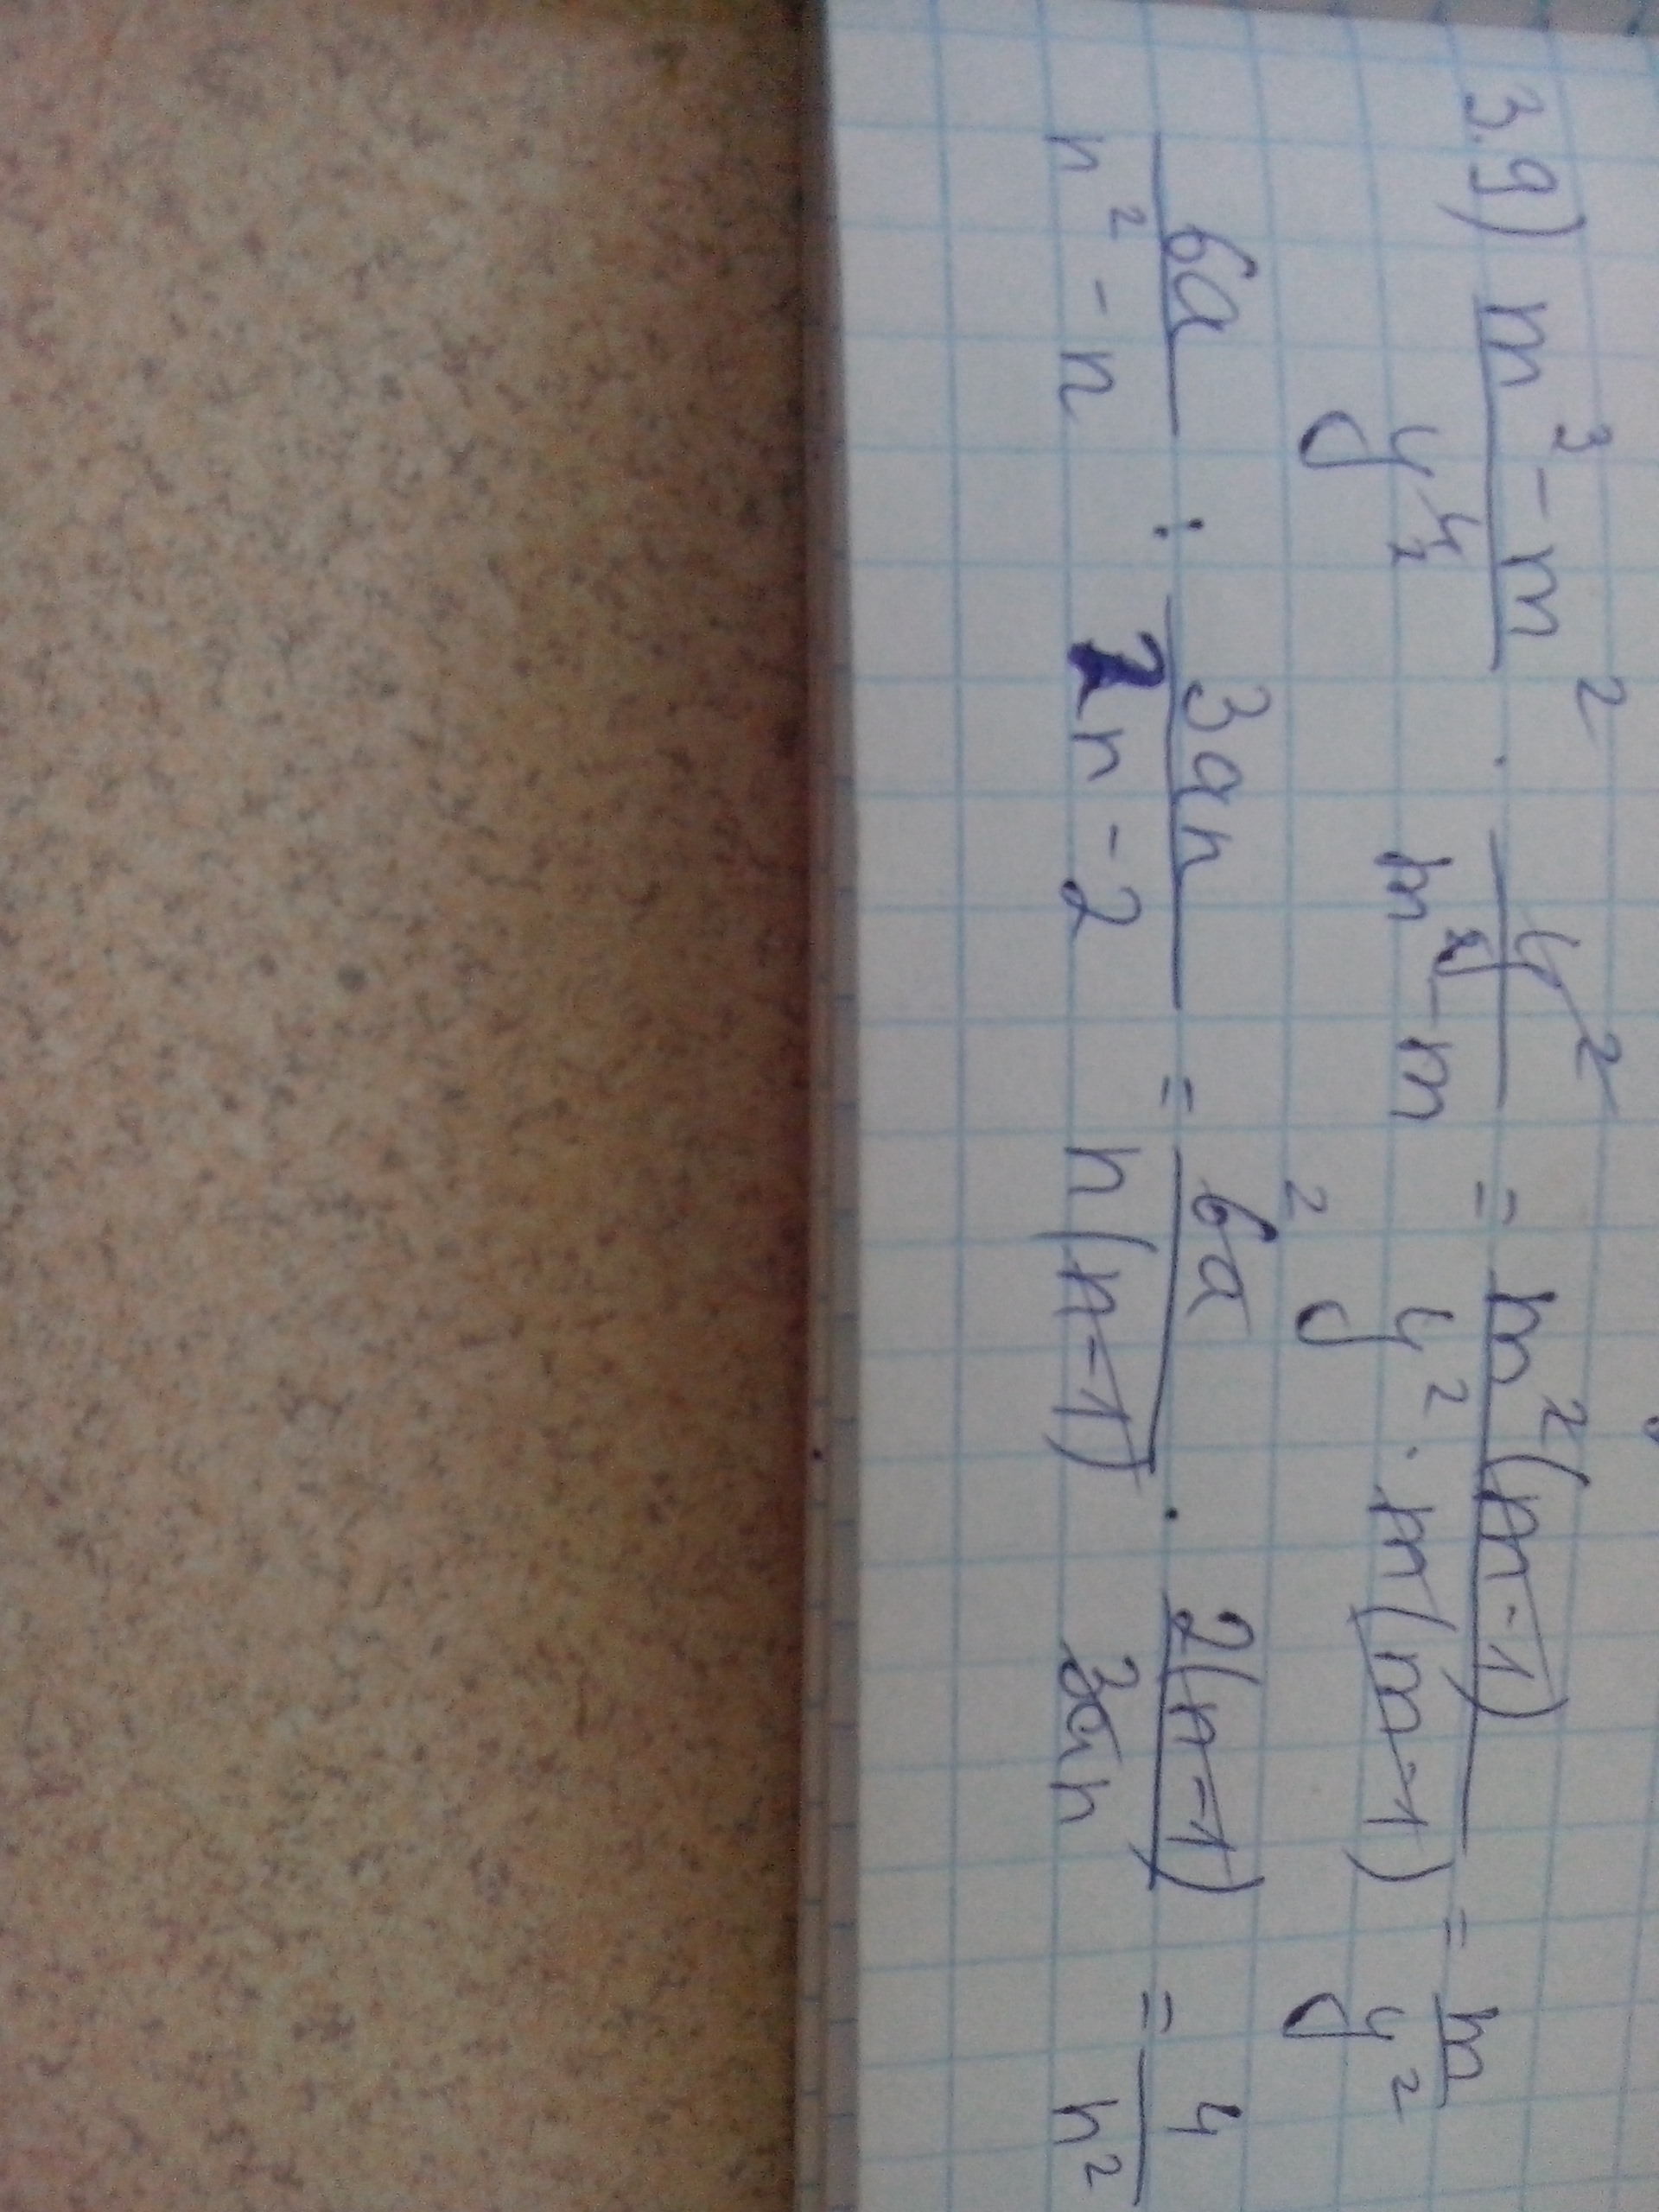 3. 9) (m³ - m²)/y⁴ · y²/(m² - m) = m²(m-1)/(y² · m(m-1)) = m/y²
6a/(n² - n) : 3an/(2n - 2) = 6a/(n(n-1)) · 2(n-1)/(3an) = 4/n²